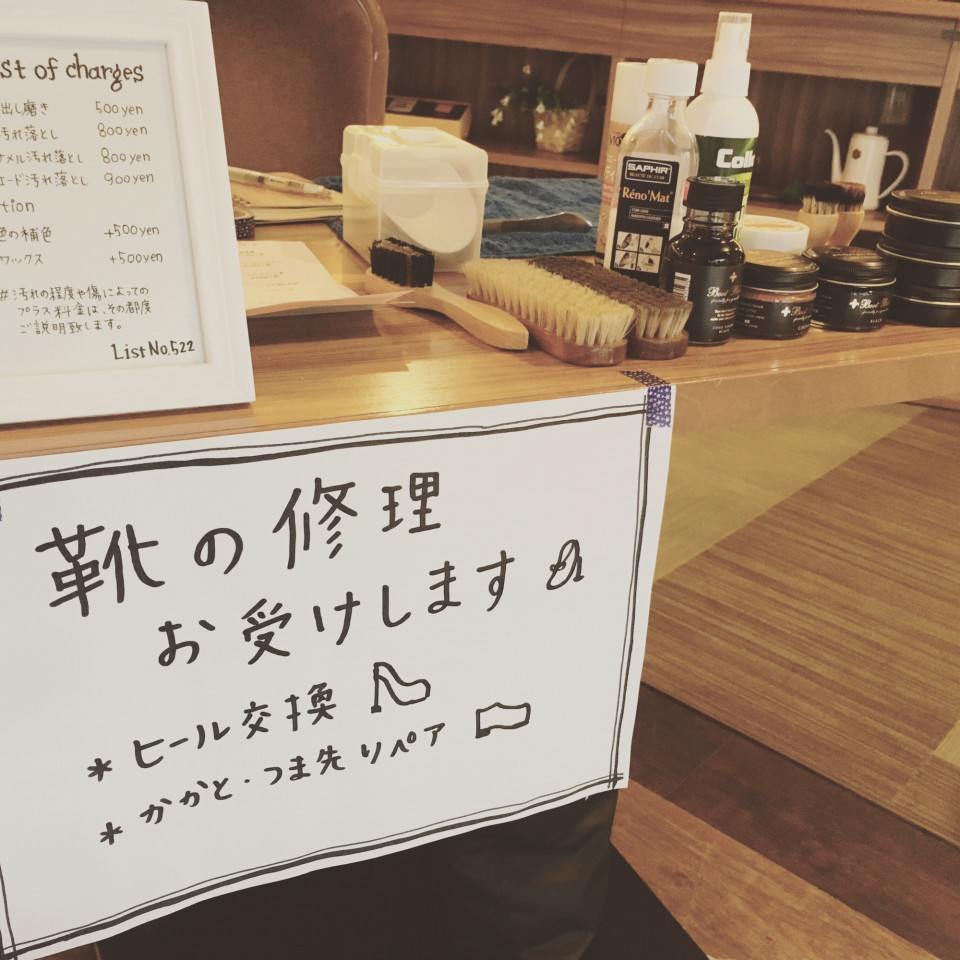 st of charges
出し磨き 500yen
汚れ落とし 800yen
ナメル汚れ落とし 800yen
エード汚れ落とし 900yen
tion
色の補色 +500yen
ワックス +500yen
#汚れの程度や傷によっての
プラス料金は、その都度
ご説明致します。
List No.522
SAPHIR
Réno'Mat
Coll
Boot
靴の修理
お受けします
* ヒール交換
* かかと・つま先リペア